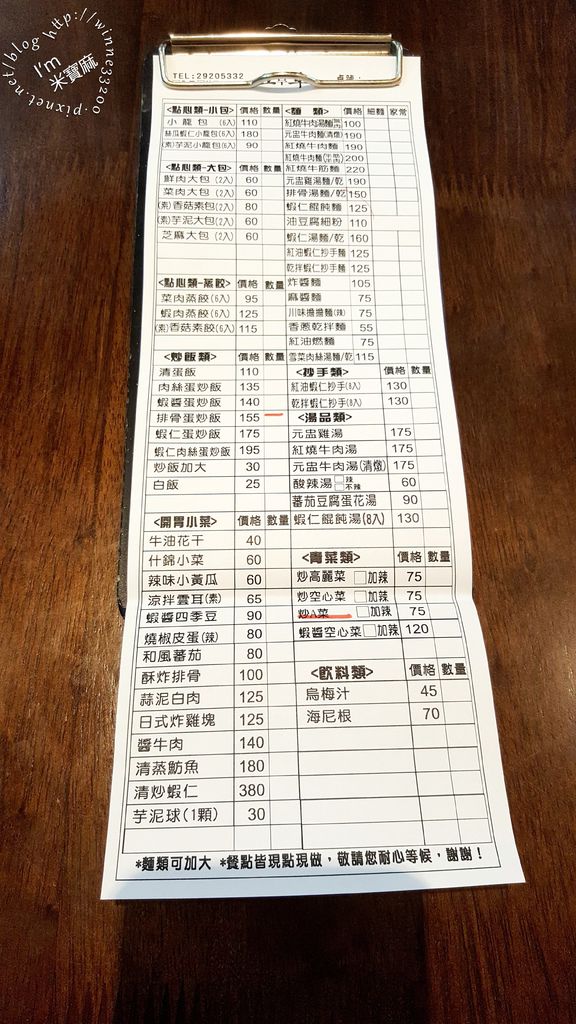 I'm
米寶麻
pixnet.net/blog http://winne33200.
TEL:29205332 桌號：
<點心類-小包> 價格 數量
小龍包 (6入) 110
絲瓜蝦仁小龍包(6入) 180
(素)芋泥小龍包(6入) 90
<點心類-大包> 價格 數量
鮮肉大包 (2入) 60
菜肉大包 (2入) 60
(素)香菇素包(2入) 80
(素)芋泥大包(2入) 60
芝麻大包 (2入) 60
<點心類-蒸餃> 價格 數量
菜肉蒸餃(6入) 95
蝦肉蒸餃(6入) 125
(素)香菇蒸餃(6入) 115
<炒飯類> 價格 數量
清蛋飯 110
肉絲蛋炒飯 135
蝦醬蛋炒飯 140
排骨蛋炒飯 155
蝦仁蛋炒飯 175
蝦仁肉絲蛋炒飯 195
炒飯加大 30
白飯 25
<開胃小菜> 價格 數量
牛油花干 40
什錦小菜 60
辣味小黃瓜 60
涼拌雲耳(素) 65
蝦醬四季豆 90
燒椒皮蛋(辣) 80
和風蕃茄 80
酥炸排骨 100
蒜泥白肉 125
日式炸雞塊 125
醬牛肉 140
清蒸魴魚 180
清炒蝦仁 380
芋泥球(1顆) 30
<麵 類> 價格 細麵 家常
紅燒牛肉湯麵 100
元盅牛肉麵(清燉) 190
紅燒牛肉麵 190
紅燒牛肉麵 200
紅燒牛筋麵 220
元盅雞湯麵/乾 190
排骨湯麵/乾 150
蝦仁餛飩麵 125
油豆腐細粉 110
蝦仁湯麵/乾 160
紅油蝦仁抄手麵 125
乾拌蝦仁抄手麵 125
炸醬麵 105
麻醬麵 75
川味擔擔麵(辣) 75
香蔥乾拌麵 55
紅油燃麵 75
雪菜肉絲湯麵/乾 115
<抄手類> 價格 數量
紅油蝦仁抄手(8入) 130
乾拌蝦仁抄手(8入) 130
<湯品類>
元盅雞湯 175
紅燒牛肉湯 175
元盅牛肉湯(清燉) 175
酸辣湯 □辣 □不辣 60
蕃茄豆腐蛋花湯 90
蝦仁餛飩湯(8入) 130
<青菜類> 價格 數量
炒高麗菜 □加辣 75
炒空心菜 □加辣 75
炒A菜 □加辣 75
蝦醬空心菜□加辣 120
<飲料類> 價格 數量
烏梅汁 45
海尼根 70
*麵類可加大 *餐點皆現點現做，敬請您耐心等候，謝謝！